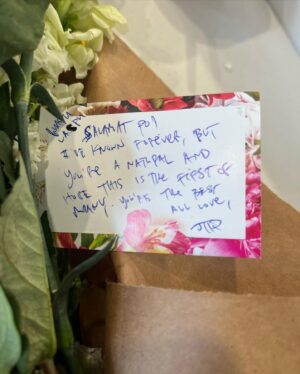 SALAMAT PO!
I'VE KNOWN FOREVER, BUT
YOU'RE A NATURAL AND
HOPE THIS IS THE FIRST OF
MANY. YOU'RE THE BEST
ALL LOVE,